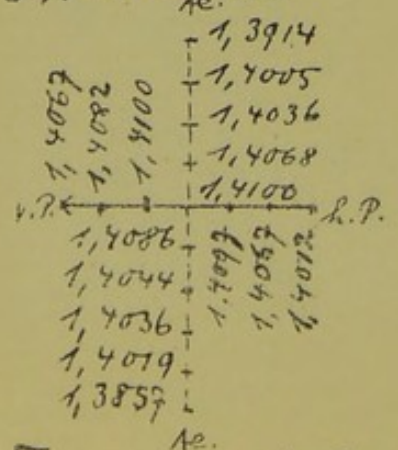 Ae.
1,3914
1,4005
1,4036
1,4068
1,4100
1,4067
1,4082
1,4100
v.P.
h.P.
1,4086
1,4044
1,4036
1,4019
1,3857
1,4097
1,4057
1,4012
Ae.